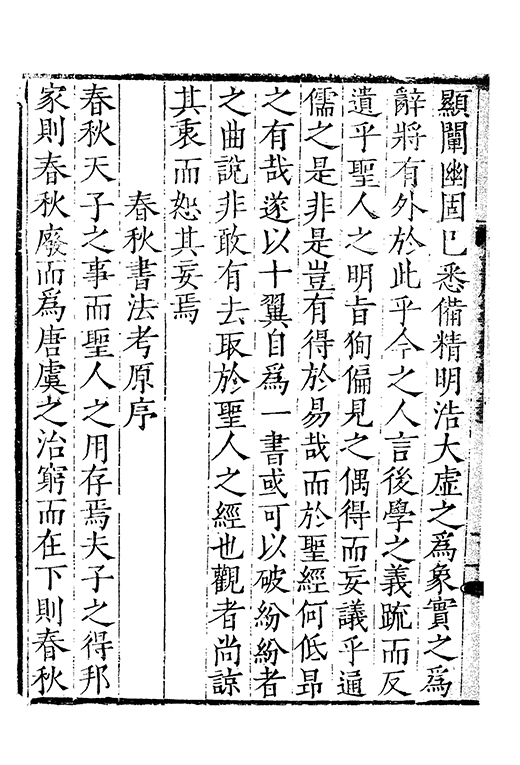 顯闡幽固已悉備精明浩大虛之爲象實之爲
辭將有外於此乎今之人言後學之義䟽而反
遺乎聖人之明㫖狥偏見之偶得而妄議乎通
儒之是非是豈有得於易哉而於聖經何低昂
之有哉遂以十翼自爲一書或可以破紛紛者
之曲說非敢有去取於聖人之經也觀者尚諒
其衷而恕其妄焉
春秋書法考原序
春秋天子之事而聖人之用存焉夫子之得邦
家則春秋廢而爲唐虞之治窮而在下則春秋